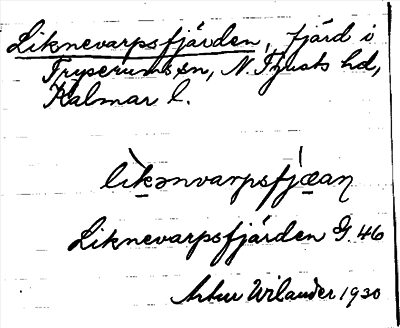 Liknevarpsfjärden, fjärd i
Tryserums sn, N. Tjusts hd,
Kalmar l.
lìkənvarpsfjæaɳ
Liknevarpsfjärden G. 46
Artur Wilander 1930